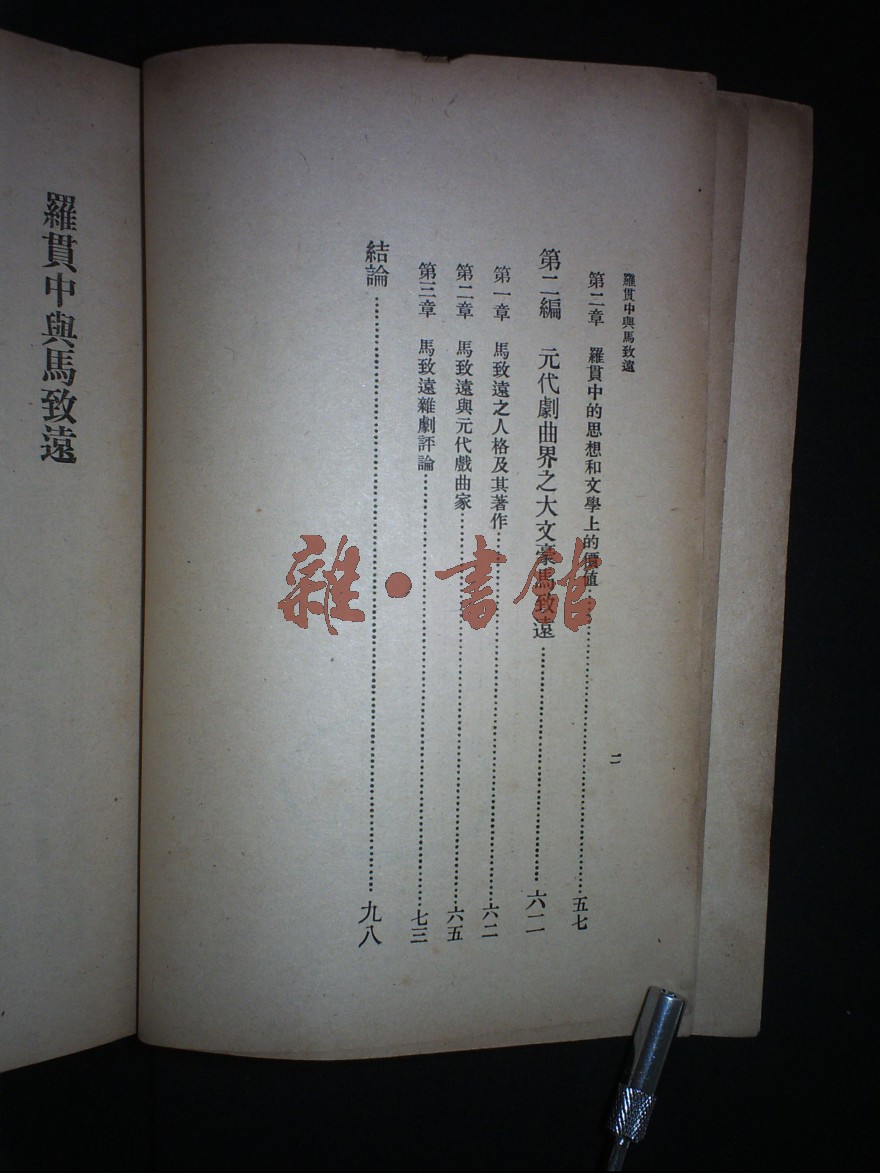 羅貫中與馬致遠
二
第二章　羅貫中的思想和文學上的價値……五七
第二編　元代劇曲界之大文豪馬致遠……六二
第一章　馬致遠之人格及其著作……六二
第二章　馬致遠與元代戲曲家……六五
第三章　馬致遠雜劇評論……七三
結論……九八
羅貫中與馬致遠
雜·書館